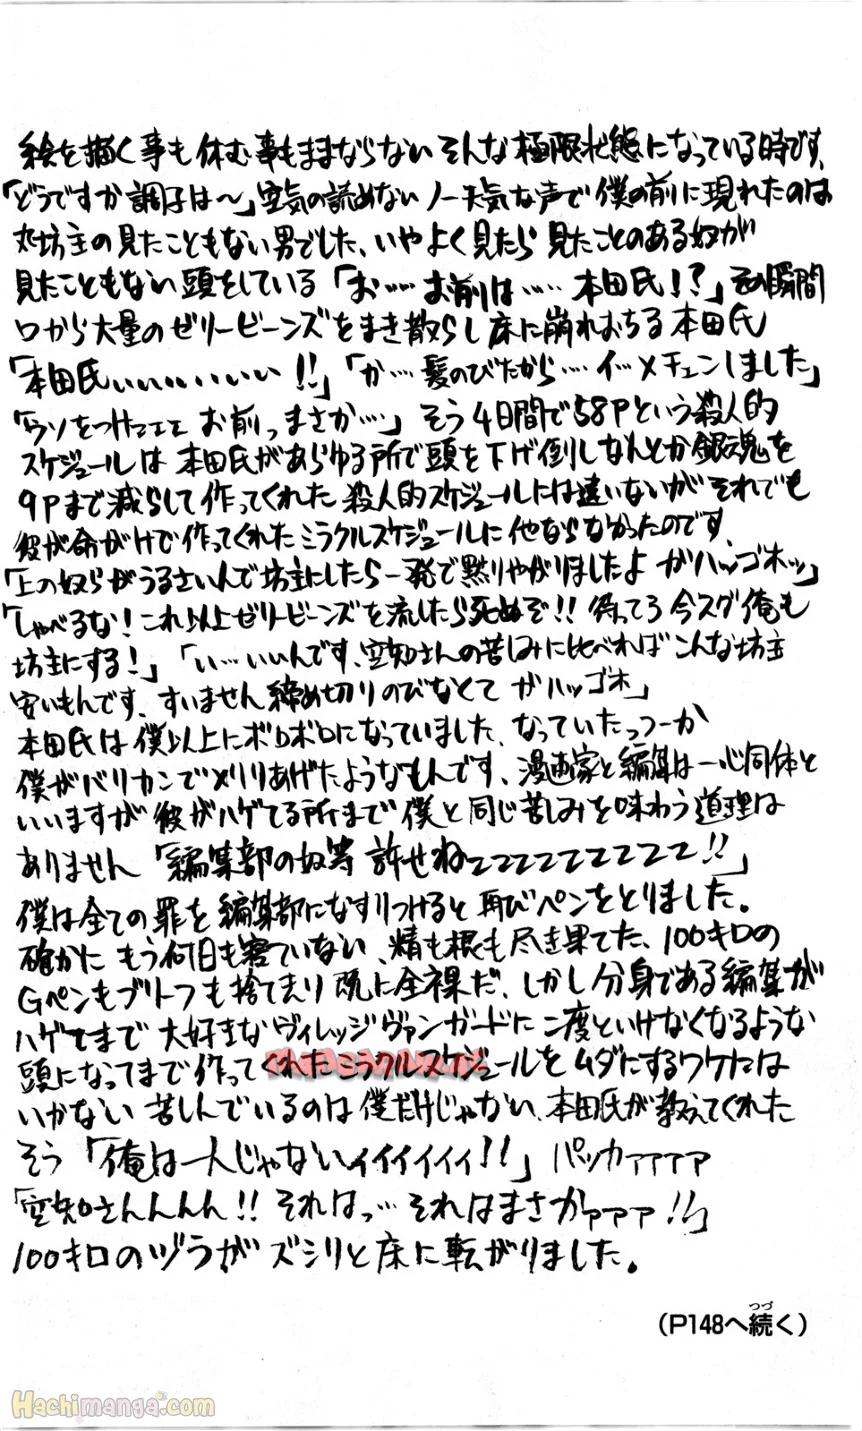 絵を描く事も休む事もままならない そんな極限状態になっている時です、
「どうですか調子は〜」空気の読めないノー天気な声で僕の前に現れたのは
丸坊主の見たこともない男でした、いやよく見たら見たことのある奴が
見たこともない頭をしている「お…… お前は…… 本田氏!?」その瞬間
口から大量のゼリービーンズをまき散らし床に崩れおちる本田氏
「本田氏ぃぃぃぃぃぃ!!」「か…髪のびたから…イ…メチェンしました」
「ウソをつけェェェ お前っまさか…」そう4日間で58Pという殺人的
スケジュールは本田氏があらゆる所で頭を下げ倒しなんとか銀魂を
9Pまで減らして作ってくれた 殺人的スケジュールには違いないが それでも
彼が命がけで作ってくれたミラクルスケジュールに他ならなかったのです、
「上の奴らがうるさいんで坊主にしたら一発で黙りやがりましたよ ガハッゴホッ」
「しゃべるな!これ以上ゼリービーンズを流したら死ぬぞ!! 待ってろ今スグ俺も
坊主にする!」「い…いいんです、空知さんの苦しみに比べればこんな坊主
安いもんです、すいません締め切りのびなくて ガハッゴホ」
本田氏は僕以上にボロボロになっていました、なっていたっつーか
僕がバリカンでメリリあげたようなもんです、漫画家と編集は一心同体と
いいますが彼がハゲてる所まで僕と同じ苦しみを味わう道理は
ありません「編集部の奴等 許せねェェェェェェェェェ!!」
僕は全ての罪を編集部になすりつけると再びペンをとりました。
確かにもう何日も寝ていない、精も根も尽き果てた、100キロの
Gペンもブリーフも捨て去り既に全裸だ、しかし分身である編集が
ハゲてまで大好きなヴィレッジヴァンガードに二度といけなくなるような
頭になってまで作ってくれたミラクルスケジュールをムダにするワケには
いかない 苦しんでいるのは僕だけじゃない、本田氏が教えてくれた
そう「俺は一人じゃないィィィィィィ!!」パッカァァァァ
「空知さんんんん!! それはっ…それはまさかァァァ!!」
100キロのヅラがズシリと床に転がりました。
(P148へ続く)
つづ
Hachimanga.com